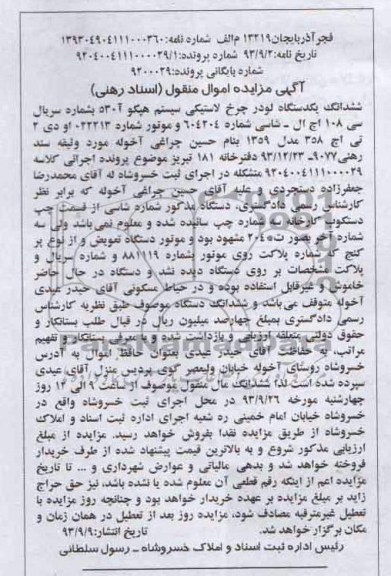 فجرآذربایجان۱۳۲۱۹ م‌الف شماره نامه:۱۳۹۳۰۴۹۰۴۱۱۱۰۰۰۳۶۰
تاریخ نامه:۹۳/۹/۲ شماره پرونده:۹۲۰۴۰۰۴۱۱۱۰۰۰۰۲۹/۱
شماره بایگانی پرونده:۹۲۰۰۰۲۹
آگهی مزایده اموال منقول (اسناد رهنی)
ششدانگ یکدستگاه لودر چرخ لاستیکی سیستم هپکو آ۵۳۰ بشماره سریال
سی ۱۰۸ اچ ال ـ شاسی شماره ۶۰۴۲۰۴ و موتور شماره ۰۲۲۲۱۳ او دی ۲
تی اچ ۳۵۸ مدل ۱۳۵۹ بنام حسین چراغی آخوله مورد وثیقه سند
رهنی۹۰۷۷-۹۳/۱۲/۲۳ دفترخانه ۱۸۱ تبریز موضوع پرونده اجرائی کلاسه
۹۲۰۴۰۰۴۱۱۱۰۰۰۰۲۹ متشکله در اجرای ثبت خسروشاه له آقای محمدرضا
جعفرزاده دستجردی و علیه آقای حسین چراغی آخوله که برابر نظر
کارشناس رسمی دادگستری، دستگاه مذکور شماره شاسی از قسمت چپ
دستکوب کارخانه به شماره چپ سائیده شده و معلوم نمی‌باشد ولی سه
شماره آخر بصورت ۲۰۴ مشهود بود و موتور دستگاه تعویض و از نوع پر
کنج که شماره پلاکت روی موتور بشماره ۸۸۱۱۱۹ و شماره سریال و
پلاکت مشخصات بر روی دستگاه دیده نشد و دستگاه در حال حاضر
خاموش و غیرقابل استفاده بوده و در حیاط مسکونی آقای حیدر عبدی
آخوله متوقف می‌باشد و ششدانگ دستگاه موصوف طبق نظریه کارشناس
رسمی دادگستری بمبلغ چهارصد میلیون ریال در قبال طلب بستانکار و
حقوق دولتی متعلقه ارزیابی و بازداشت شده و با معرفی بستانکار و تفهیم
مراتب، به حفاظت آقای حیدر عبدی بعنوان حافظ اموال به آدرس
خسروشاه روستای آخوله خیابان ولیعصر کوی پردیس منزل آقای عبدی
سپرده شده است لذا ششدانگ مال منقول موصوف از ساعت ۹ الی ۱۲ روز
چهارشنبه مورخه ۹۳/۹/۲۶ در محل اجرای ثبت خسروشاه واقع در
خسروشاه خیابان امام خمینی ره شعبه اجرای اداره ثبت اسناد و املاک
خسروشاه از طریق مزایده نقدا بفروش خواهد رسید. مزایده از مبلغ
ارزیابی مذکور شروع و به بالاترین قیمت پیشنهاد شده از طرف خریدار
فروخته خواهد شد و بدهی مالیاتی و عوارض شهرداری و ... تا تاریخ
مزایده اعم از اینکه رقم قطعی آن معلوم شده یا نشده باشد، نیز حق حراج
زاید بر مبلغ مزایده بر عهده خریدار خواهد بود و چنانچه روز مزایده با
تعطیل غیرمترقبه مصادف شود، مزایده روز بعد از تعطیل در همان زمان و
مکان برگزار خواهد شد. تاریخ انتشار:۹۳/۹/۹
رئیس اداره ثبت اسناد و املاک خسروشاه ـ رسول سلطانی